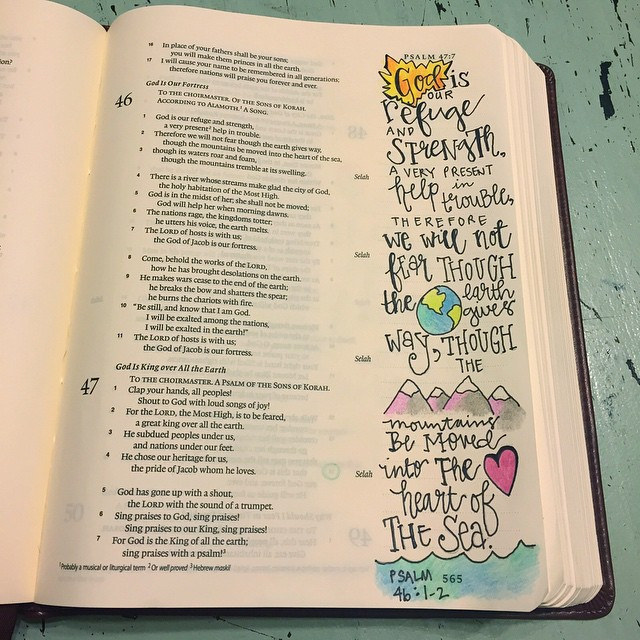 ion?
16 In place of your fathers shall be your sons;
you will make them princes in all the earth.
17 I will cause your name to be remembered in all generations;
therefore nations will praise you forever and ever.
God Is Our Fortress
46 TO THE CHOIRMASTER. OF THE SONS OF KORAH.
ACCORDING TO ALAMOTH.¹ A SONG.
1 God is our refuge and strength,
a very present² help in trouble.
2 Therefore we will not fear though the earth gives way,
though the mountains be moved into the heart of the sea,
3 though its waters roar and foam,
though the mountains tremble at its swelling. Selah
4 There is a river whose streams make glad the city of God,
the holy habitation of the Most High.
5 God is in the midst of her; she shall not be moved;
God will help her when morning dawns.
6 The nations rage, the kingdoms totter;
he utters his voice, the earth melts.
7 The LORD of hosts is with us;
the God of Jacob is our fortress. Selah
8 Come, behold the works of the LORD,
how he has brought desolations on the earth.
9 He makes wars cease to the end of the earth;
he breaks the bow and shatters the spear;
he burns the chariots with fire.
10 "Be still, and know that I am God.
I will be exalted among the nations,
I will be exalted in the earth!"
11 The LORD of hosts is with us;
the God of Jacob is our fortress. Selah
God Is King over All the Earth
47 TO THE CHOIRMASTER. A PSALM OF THE SONS OF KORAH.
1 Clap your hands, all peoples!
Shout to God with loud songs of joy!
2 For the LORD, the Most High, is to be feared,
a great king over all the earth.
3 He subdued peoples under us,
and nations under our feet.
4 He chose our heritage for us,
the pride of Jacob whom he loves. Selah
5 God has gone up with a shout,
the LORD with the sound of a trumpet.
6 Sing praises to God, sing praises!
Sing praises to our King, sing praises!
7 For God is the King of all the earth;
sing praises with a psalm!³
¹Probably a musical or liturgical term ² Or well proved ³ Hebrew maskil
PSALM 47:7
God is
OUR
refuge
AND
STRENGTH,
A VERY PRESENT
help in trouble,
THEREFORE
we will not
fear THOUGH
the earth
gives
way, THOUGH
THE
mountains
Be MOVED
into The
heart of
THE Sea.
PSALM 565
46:1-2